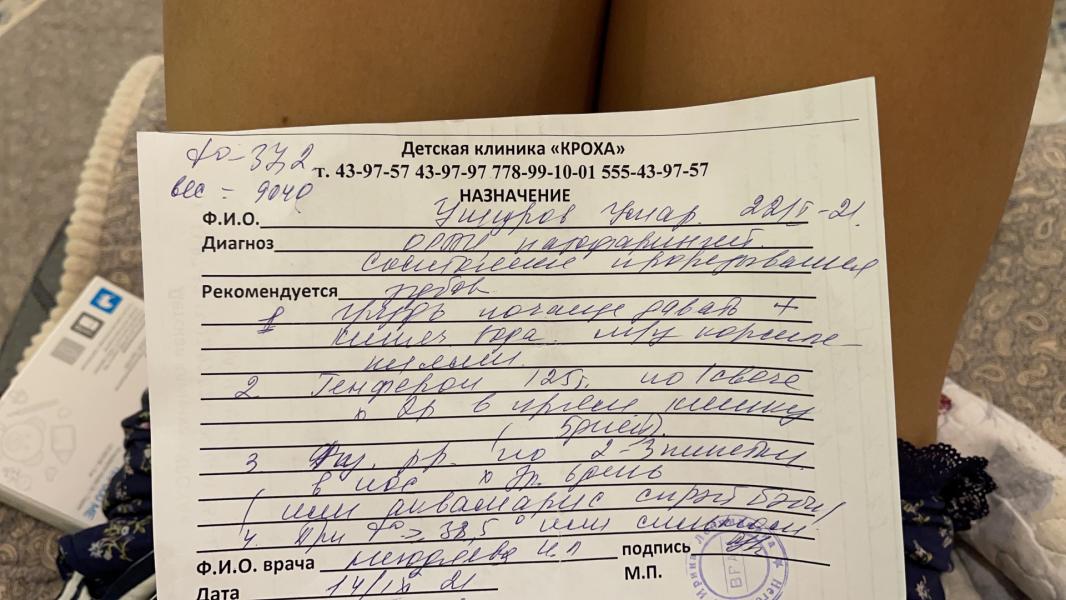 t° - 37,2
вес = 9040
Детская клиника «КРОХА»
т. 43-97-57 43-97-97 778-99-10-01 555-43-97-57
НАЗНАЧЕНИЕ
Ф.И.О. Умар 22 -21
Диагноз назофарингит.
прорезывания
Рекомендуется зубов
1 Грудь почаще давать +
кипяч вода. между кормле-
ниями.
2 Генферон 125 т. по 1 свече
х 2р в прямую кишку
(5 дней).
3 Физ. р-р. по 2-3 пипетки
в нос х 3р в день
(или аквамарис спрей бэби)
4. При t° ≥ 38,5° или сильной
Ф.И.О. врача подпись
М.П.
Дата 14/IX 21
Ирина
ВРАЧ